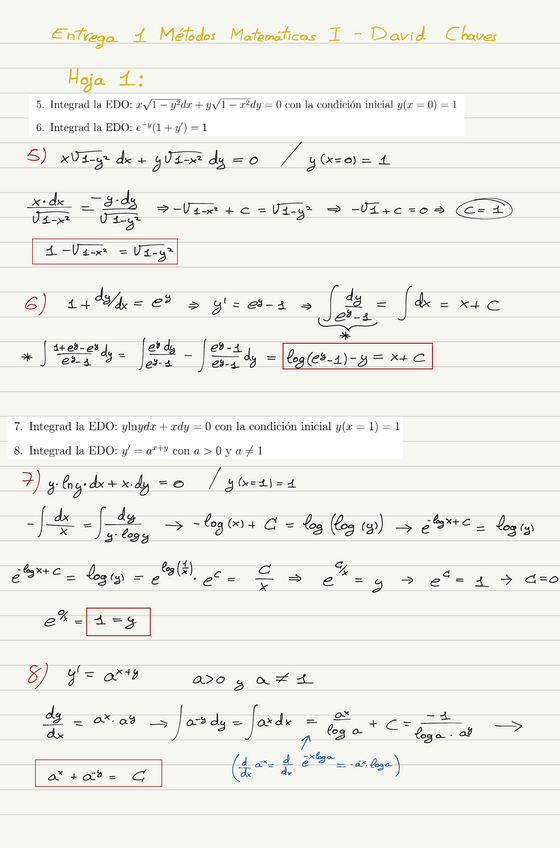 Entrega 1 Métodos Matemáticos I - David Chaves
Hoja 1:
5. Integrad la EDO: x√1 − y²dx + y√1 − x²dy = 0 con la condición inicial y(x = 0) = 1
6. Integrad la EDO: e^−y(1 + y′) = 1
5) x√1-y² dx + y√1-x² dy = 0 / y(x=0) = 1
x·dx/√1-x² = -y·dy/√1-y² ⇒ -√1-x² + C = √1-y² ⇒ -√1 + C = 0 ⇒ C = 1
1 - √1-x² = √1-y²
6) 1 + dy/dx = e^y ⇒ y' = e^y - 1 ⇒ ∫ dy/e^y-1 = ∫ dx = x + C
*
* ∫ 1+e^y-e^y/e^y-1 dy = ∫ e^y dy/e^y-1 - ∫ e^y-1/e^y-1 dy = log(e^y-1) - y = x + C
7. Integrad la EDO: ylnydx + xdy = 0 con la condición inicial y(x = 1) = 1
8. Integrad la EDO: y′ = a^x+y con a > 0 y a ≠ 1
7) y·lny·dx + x·dy = 0 / y(x=1) = 1
-∫ dx/x = ∫ dy/y·logy → -log(x) + C = log(log(y)) → e^-logx+C = log(y)
e^-logx+C = log(y) = e^log(1/x) · e^C = C/x ⇒ e^C/x = y → e^C = 1 → C=0
e^0/x = 1 = y
8) y' = a^x+y a>0 y a ≠ 1
dy/dx = a^x·a^y → ∫ a^-y dy = ∫ a^x dx = a^x/log a + C = -1/log a · a^y →
(d/dx a^-x = d/dx e^-xloga = -a^-x·loga)
a^x + a^-y = C